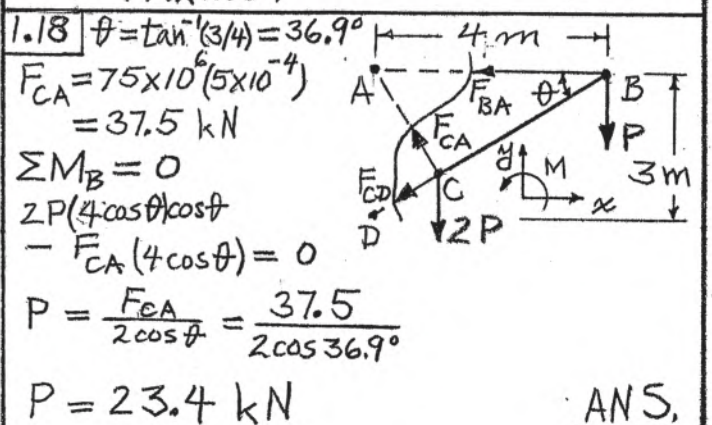 1.18 θ = tan⁻¹(3/4) = 36.9°
F_CA = 75x10⁶(5x10⁻⁴)
= 37.5 kN
ΣM_B = 0
2P(4cosθ)cosθ
- F_CA (4cosθ) = 0
P = F_CA / 2cosθ = 37.5 / 2cos 36.9°
P = 23.4 kN ANS.
4 m
A F_BA θ B
F_CA P
y M 3 m
F_CD C x
D 2P